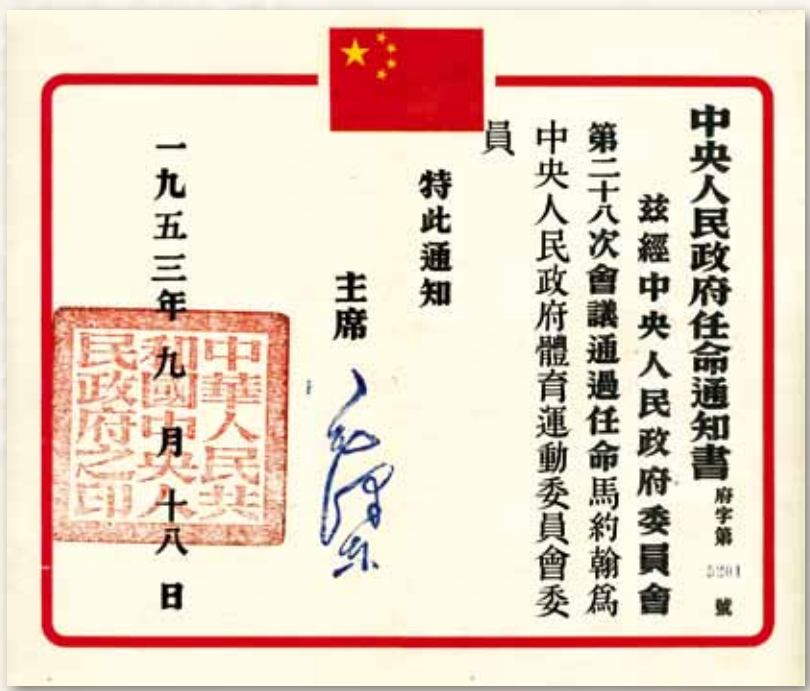 中央人民政府任命通知書
府字第 5201 號
茲經中央人民政府委員會
第二十八次會議通過任命馬約翰爲
中央人民政府體育運動委員會委
員
特此通知
主席 毛澤東
一九五三年九月十八日
中華人民共
和國中央人
民政府之印